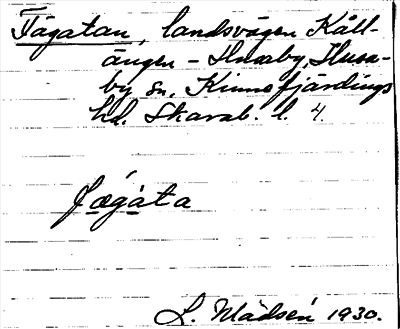 Tågatan, landsvägen Käll-
ängen - Husaby, Husa-
by sn, Kinnefjärdings
hd. Skarab. l. 4.
fægáta
L. Mådsén 1930.